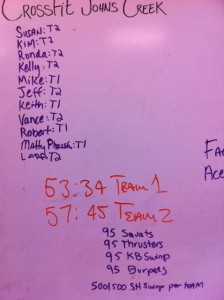 CROSSFIT JOHNS CREEK
SUSAN: T2
KIM: T2
Ronda: T2
Kelly: T2
Mike: T1
Jeff: T2
Keith: T1
Vance: T2
Robert: T1
T1
T2
53:34 TEAM 1
57:45 TEAM 2
95 Squats
95 Thrusters
95 KB Swings
95 Burpees
500/500 SH Swings per TEAM